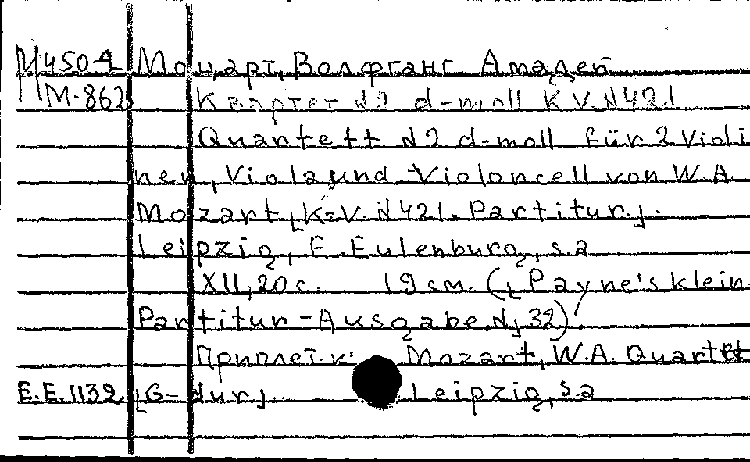 М4504 Моцарт, Волфганг Амадей
М-862 Квартет №2 d-moll K.V. №421
Quartett №2 d-moll für 2 Violi
nen, Viola und Violoncell von W.A.
Mozart, [K.-V. №421. Partitur.].
Leipzig, E. Eulenburg, s.a
XII, 20 с. 19 см. ([Payne's klein
Partitur-Ausgabe. №] 32).
Приплет к: Mozart, W.A. Quartett
E.E.1132. [G-dur]. Leipzig, s.a